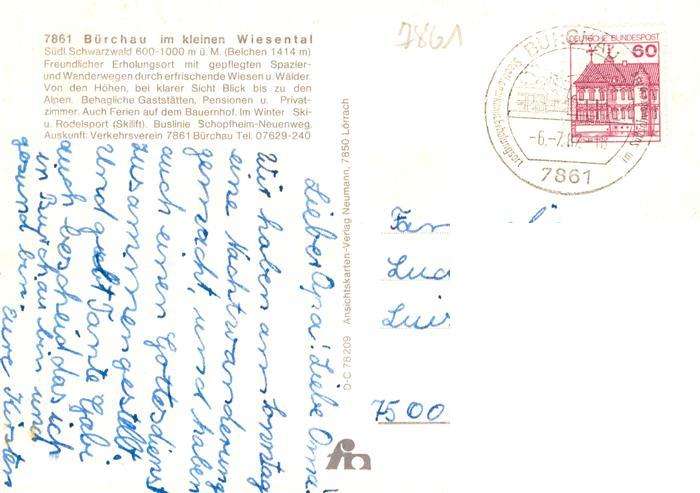 7861 Bürchau im kleinen Wiesental
Südl. Schwarzwald 600-1000 m ü. M. (Belchen 1414 m)
Freundlicher Erholungsort mit gepflegten Spazier-
und Wanderwegen durch erfrischende Wiesen u. Wälder.
Von den Höhen, bei klarer Sicht Blick bis zu den
Alpen. Behagliche Gaststätten, Pensionen u. Privat-
zimmer. Auch Ferien auf dem Bauernhof. Im Winter Ski-
u. Rodelsport (Skilift). Buslinie Schopfheim-Neuenweg.
Auskunft: Verkehrsverein 7861 Bürchau Tel. 07629-240
7861
DEUTSCHE BUNDESPOST
60
7861
Lieber Opa! Liebe Oma!
Wir haben am Sonntag
eine Nachtwanderung
gemacht, und haben
auch einen Gottesdienst
zusammengestellt
Und gebt Tante Gabi
auch bescheid das ich
in Bürchau bin und
gesund bin.
eure Kirsten
D-C 78209 Ansichtskarten-Verlag Neumann, 7850 Lörrach
Fam
Lud
Luis
7500